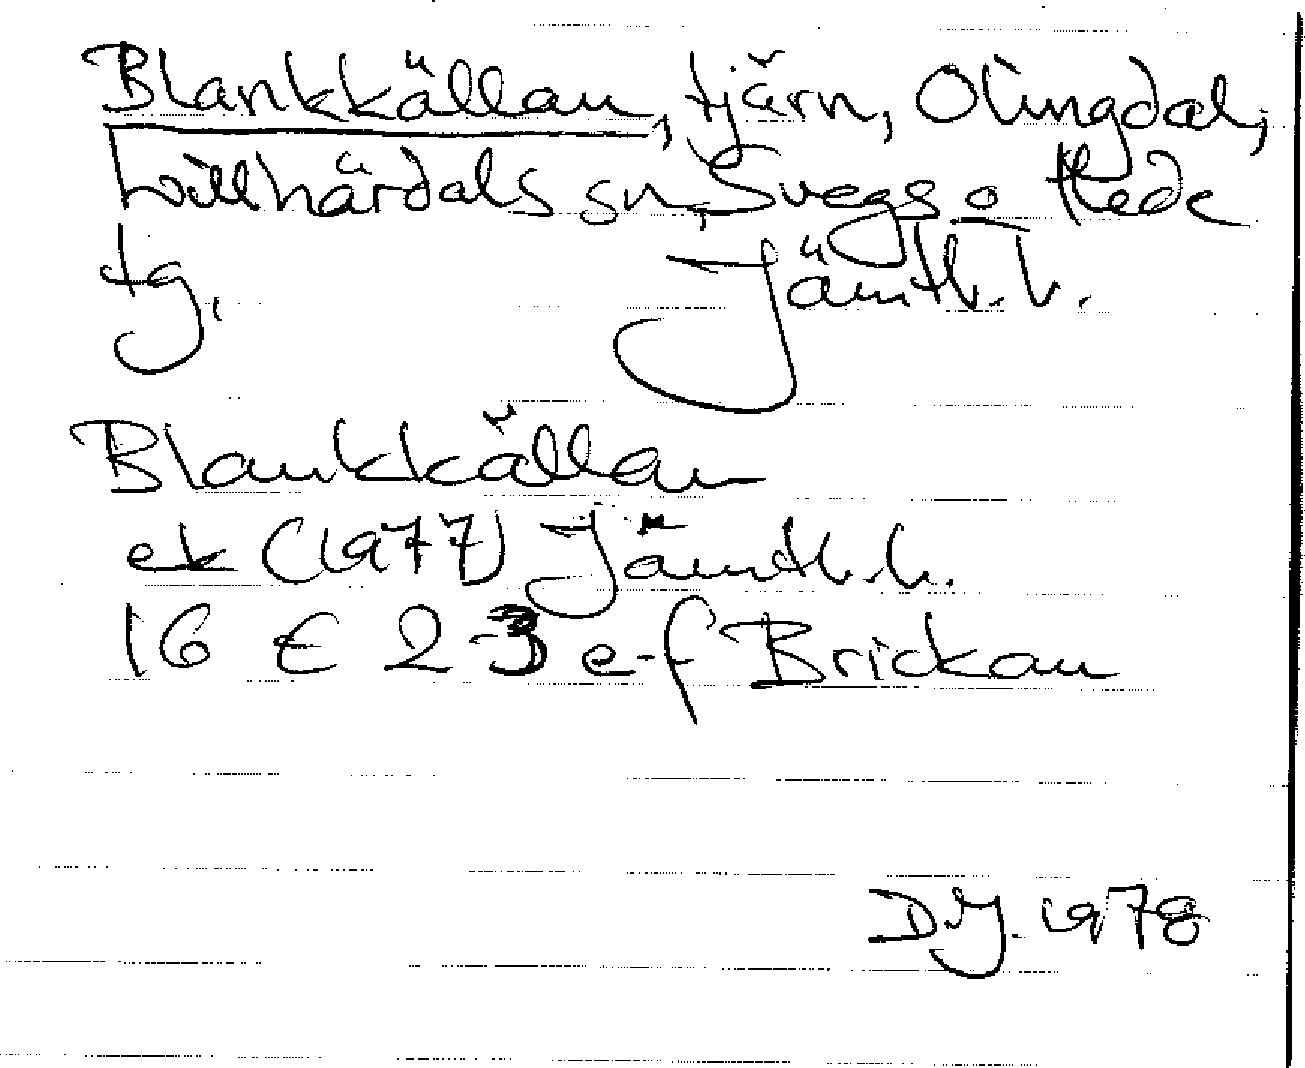 Blankkällan, tjärn, Olingdal,
Lillhärdals sn, Svegs o Hede
tg. Jämtl.l.
Blankkällan
ek (1977) Jämtl.l.
16 E 2-3 e-f Brickan
D.J. 1978